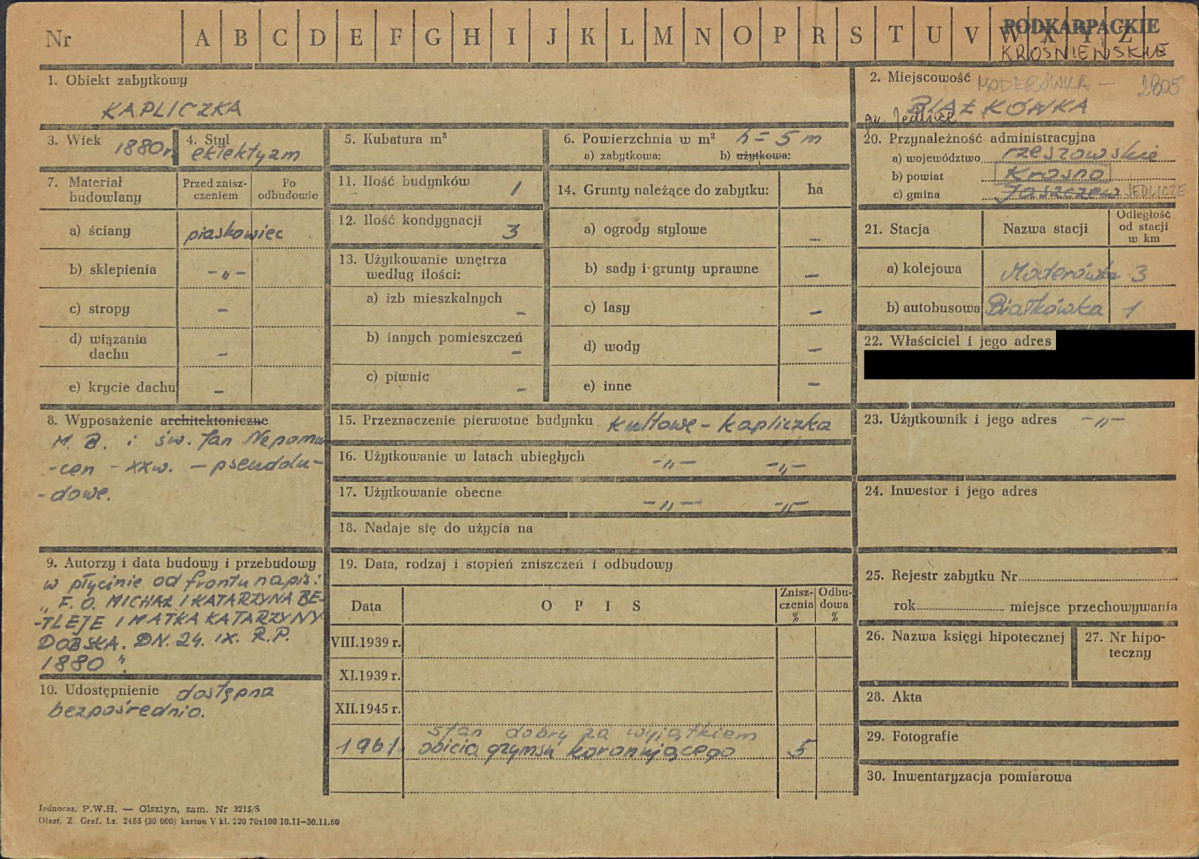 Nr A B C D E F G H I J K L M N O P R S T U V W X Y Z
PODKARPACKIE
KROŚNIEŃSKIE
1. Obiekt zabytkowy
KAPLICZKA
2. Miejscowość MODERÓWKA – 2805
BIAŁKÓWKA
gm. Jedlicze
3. Wiek 1880 r.
4. Styl
eklektyzm
5. Kubatura m³
6. Powierzchnia w m² h = 5 m
a) zabytkowa: b) użytkowa:
20. Przynależność administracyjna
a) województwo rzeszowskie
b) powiat Krosno
c) gmina Jaszczew JEDLICZE
7. Materiał budowlany
Przed zniszczeniem
Po odbudowie
a) ściany piaskowiec
b) sklepienia –„–
c) stropy –
d) wiązania dachu –
e) krycie dachu –
11. Ilość budynków 1
12. Ilość kondygnacji 3
13. Użytkowanie wnętrza
według ilości:
a) izb mieszkalnych –
b) innych pomieszczeń –
c) piwnic –
14. Grunty należące do zabytku: ha
a) ogrody stylowe –
b) sady i grunty uprawne –
c) lasy –
d) wody –
e) inne –
21. Stacja Nazwa stacji
Odległość
od stacji
w km
a) kolejowa Moderówka 3
b) autobusowa Białkówka 1
22. Właściciel i jego adres
8. Wyposażenie architektoniczne
M. B. i św. Jan Nepomu-
-cen – XX w. – pseudolu-
-dowe.
15. Przeznaczenie pierwotne budynku kultowe – kapliczka
16. Użytkowanie w latach ubiegłych –„– –„–
17. Użytkowanie obecne –„– –„–
18. Nadaje się do użycia na
23. Użytkownik i jego adres –„–
24. Inwestor i jego adres
9. Autorzy i data budowy i przebudowy
w płycinie od frontu napis:
„F. O. MICHAŁ I KATARZYNA BE-
-TLEJE I MATKA KATARZYNY
DOBSKA. DN. 24. IX. R.P.
1880".
10. Udostępnienie dostępna
bezpośrednio.
19. Data, rodzaj i stopień zniszczeń i odbudowy
Data
O P I S
Zniszczenia %
Odbudowa %
VIII.1939 r.
XI.1939 r.
XII.1945 r.
stan dobry za wyjątkiem
1961 obicia gzymsu koronującego 5
25. Rejestr zabytku Nr
rok miejsce przechowywania
26. Nazwa księgi hipotecznej
27. Nr hipoteczny
28. Akta
29. Fotografie
30. Inwentaryzacja pomiarowa
Jednocz. P.W.H. — Olsztyn, zam. Nr 3215/S
Olszt. Z. Graf. Lz. 2485 (30 000) karton V kl. 220 70x100 10.11–30.11.60